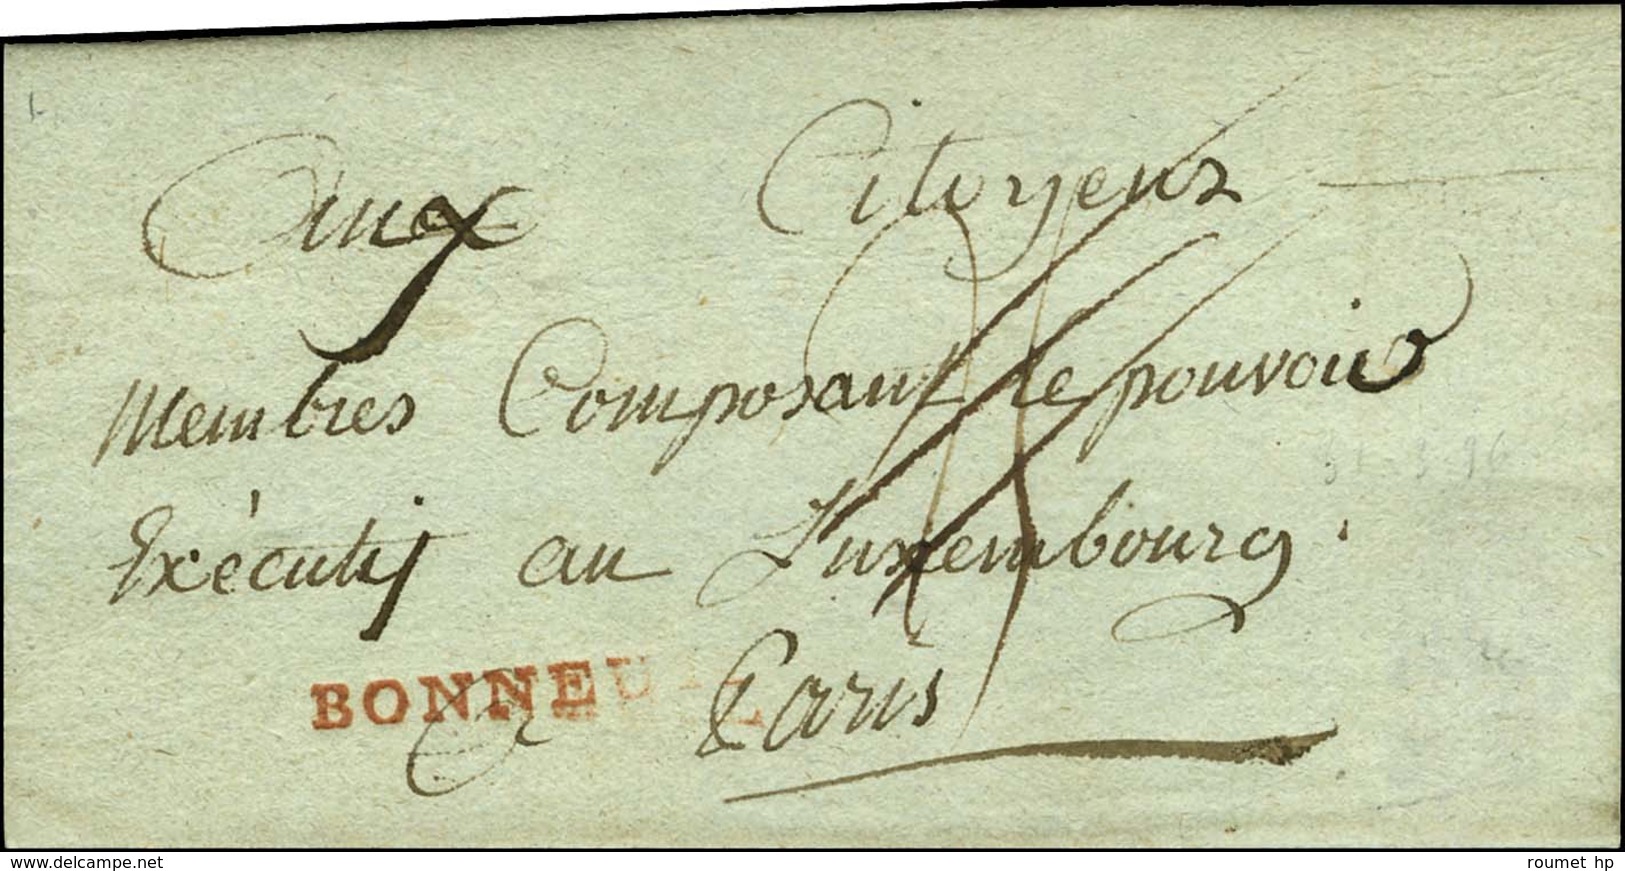 Aux Citoyens
Membres Composant le pouvoir
Exécutif au Luxembourg.
BONNEUIL
a Paris
www.delcampe.net
roumet hp